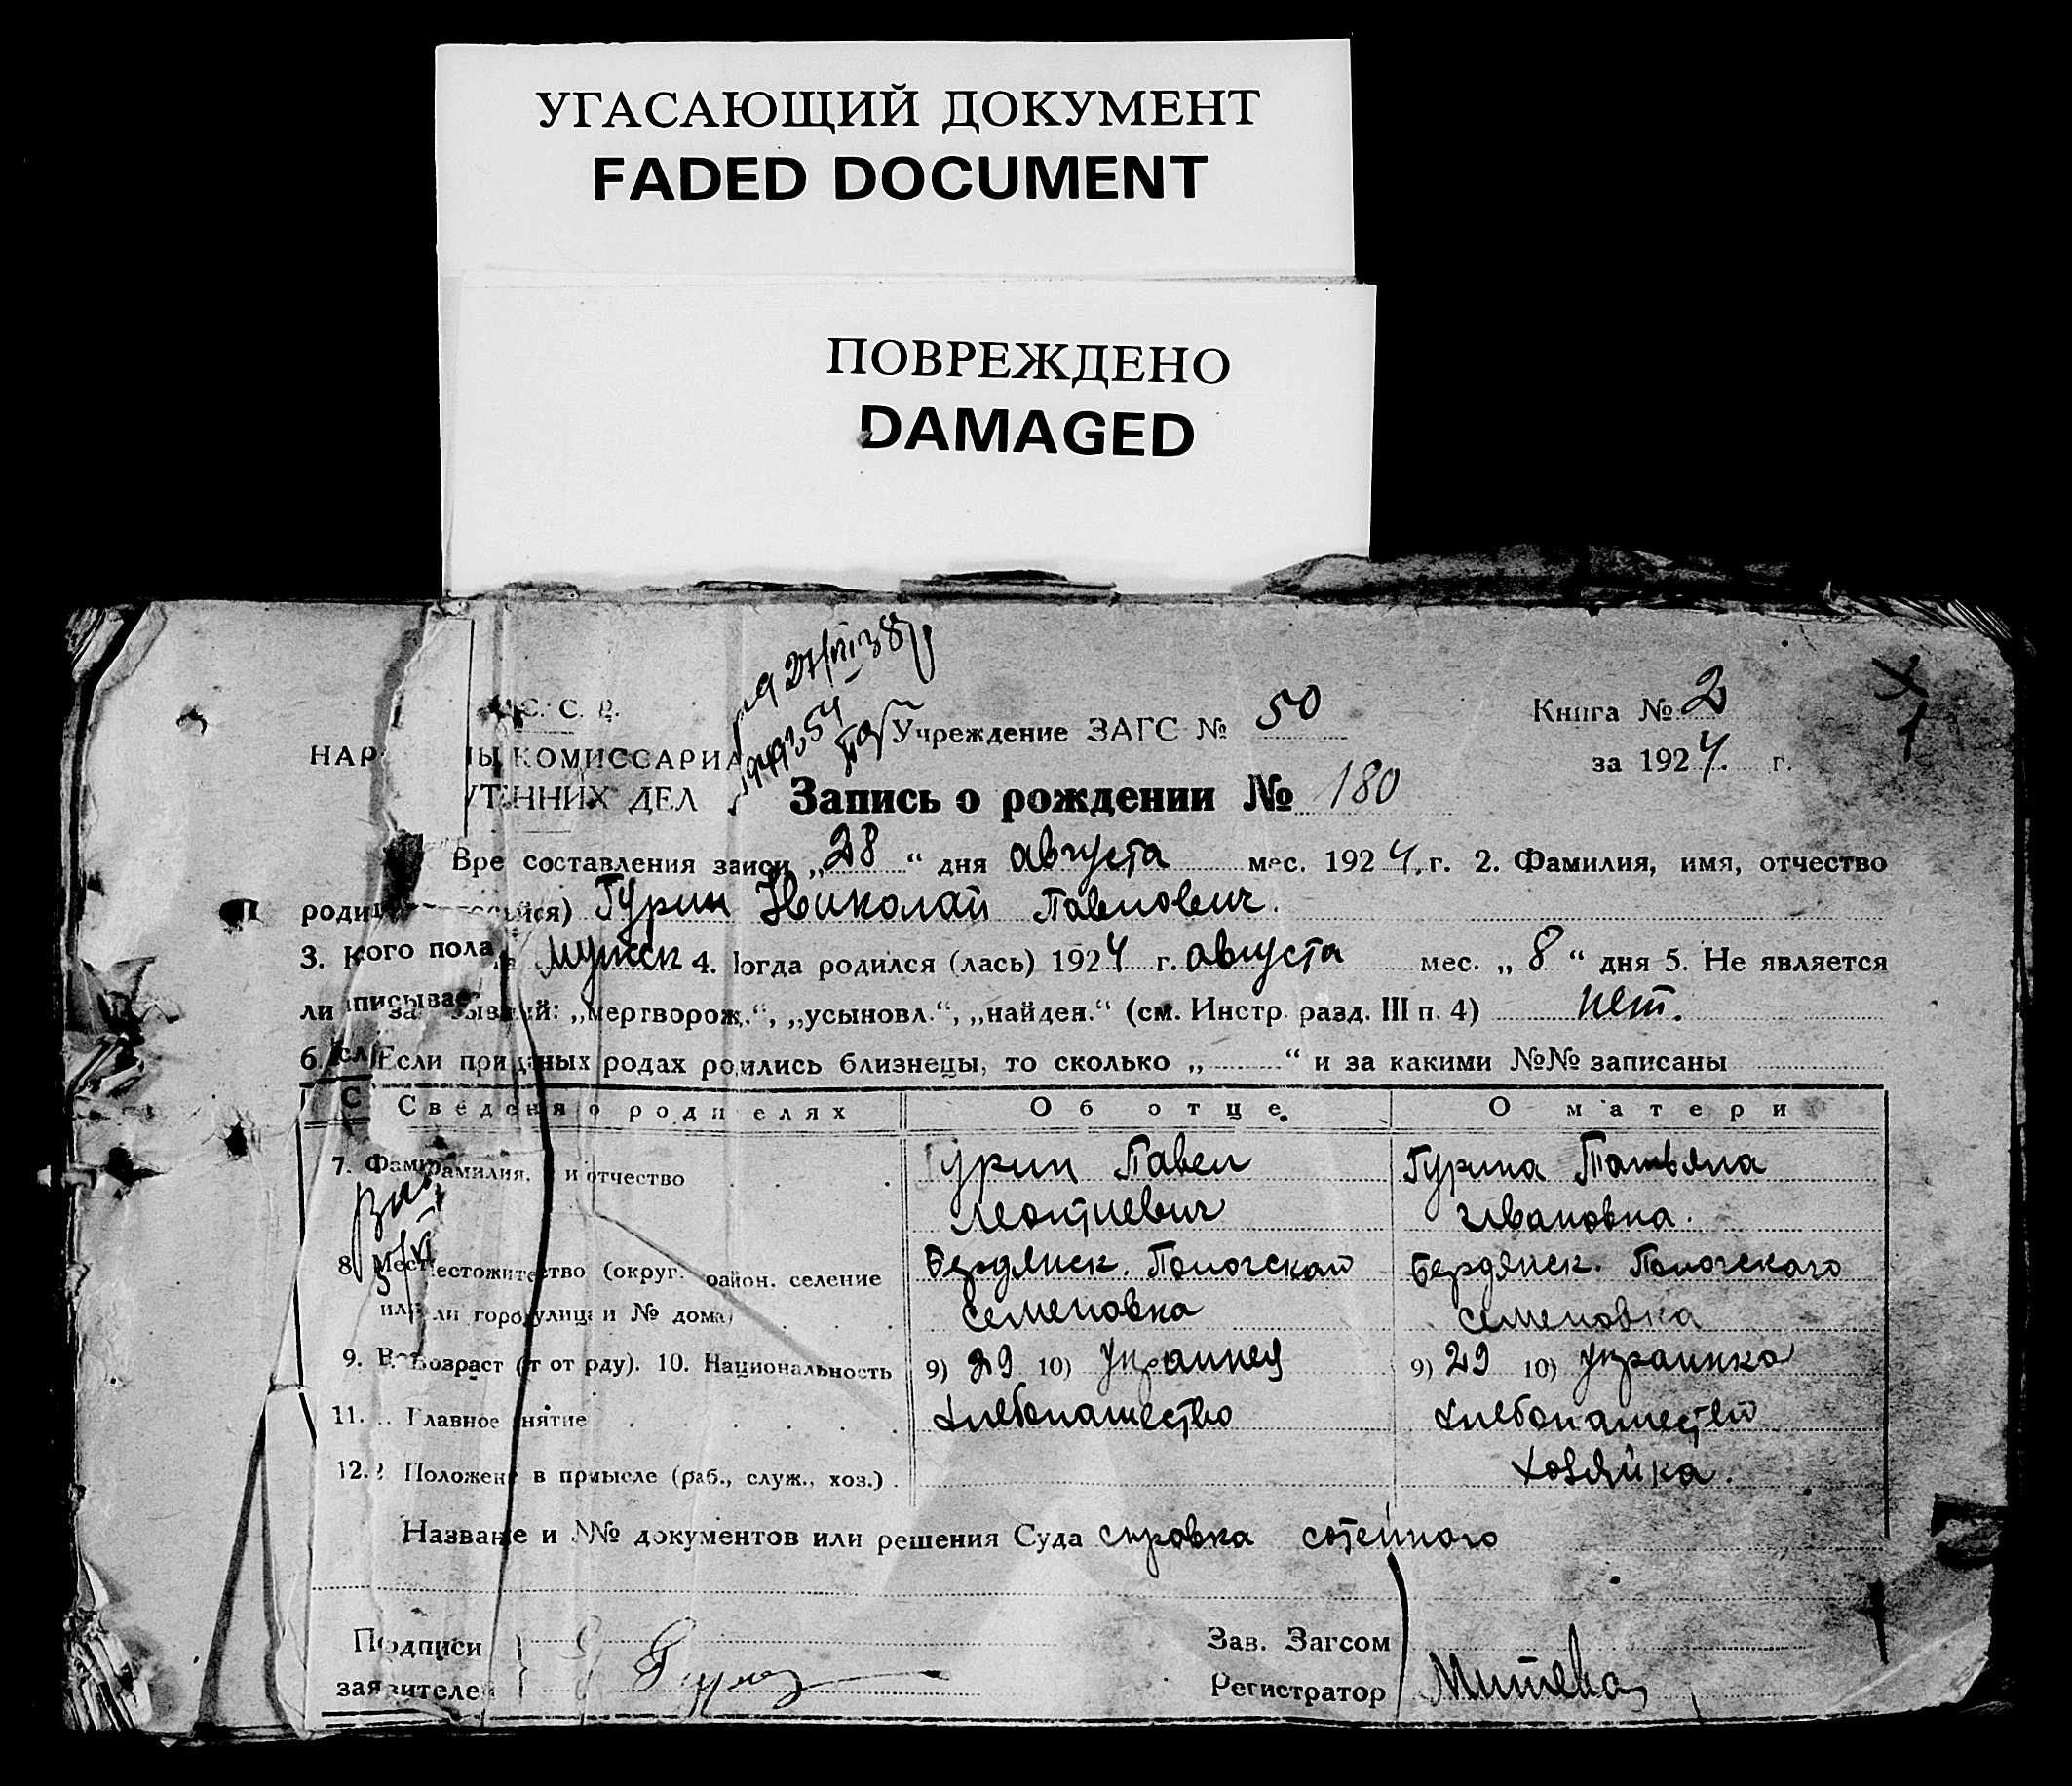 УГАСАЮЩИЙ ДОКУМЕНТ
FADED DOCUMENT
ПОВРЕЖДЕНО
DAMAGED
С. С. Р.
Учреждение ЗАГС № 50
Книга № 2
НАР ЫЙ КОМИССАРИА
за 1924 г.
УТ ННИХ ДЕЛ
Запись о рождении № 180
Вре составления записи „28“ дня августа мес. 1924 г. 2. Фамилия, имя, отчество
роди йся) Гурин Николай Павлович.
3. Кого пола мужск 4. Когда родился (лась) 1924 г. августа мес. „8“ дня 5. Не является
ли за ый: „мертворож.“, „усыновл.“, „найден.“ (см. Инстр. разд. III п. 4) нет.
6. Если при данных родах родились близнецы, то сколько „ “ и за какими №№ записаны
Сведения о родителях Об отце О матери
7. Фамилия, и отчество Гурин Павел Гурина Татьяна
Леонтиевич Ивановна.
8. Местожительство (округ. район. селение Бердянск. Пологской Бердянск. Пологского
или город улица и № дома) Семеновка Семеновка
9. Возраст (от роду). 10. Национальность 9) 29 10) Украинец 9) 29 10) Украинка
11. Главное занятие Хлебопашество Хлебопашество
12. Положение в промысле (раб., служ., хоз.) хозяйка.
Название и №№ документов или решения Суда справка сотенного
Подписи Зав. Загсом
заявителей Регистратор